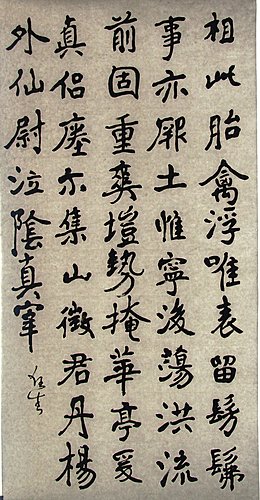 相此胎禽浮唯表留髣髴
事亦厥土惟寧後蕩洪流
前固重爽塏勢掩華亭爰
真侶瘞尒集山徵君丹楊
外仙尉江陰真宰